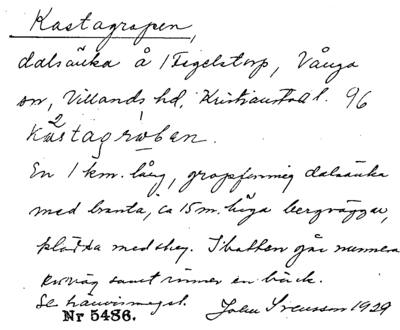 Kastagropen,
dalsänka å 1 Tegelstorp, Vånga
sn, Villands hd, Kristianstad l. 96
2 1
kåstagrɷban.
En 1 km. lång, gropformig dalsänka
med branta, ca 15 m. höga bergväggar,
klädda med skog. I botten går numera
körväg samt rinner en bäck.
Se hänvisningsl. John Svensson 1929
Nr 5486.